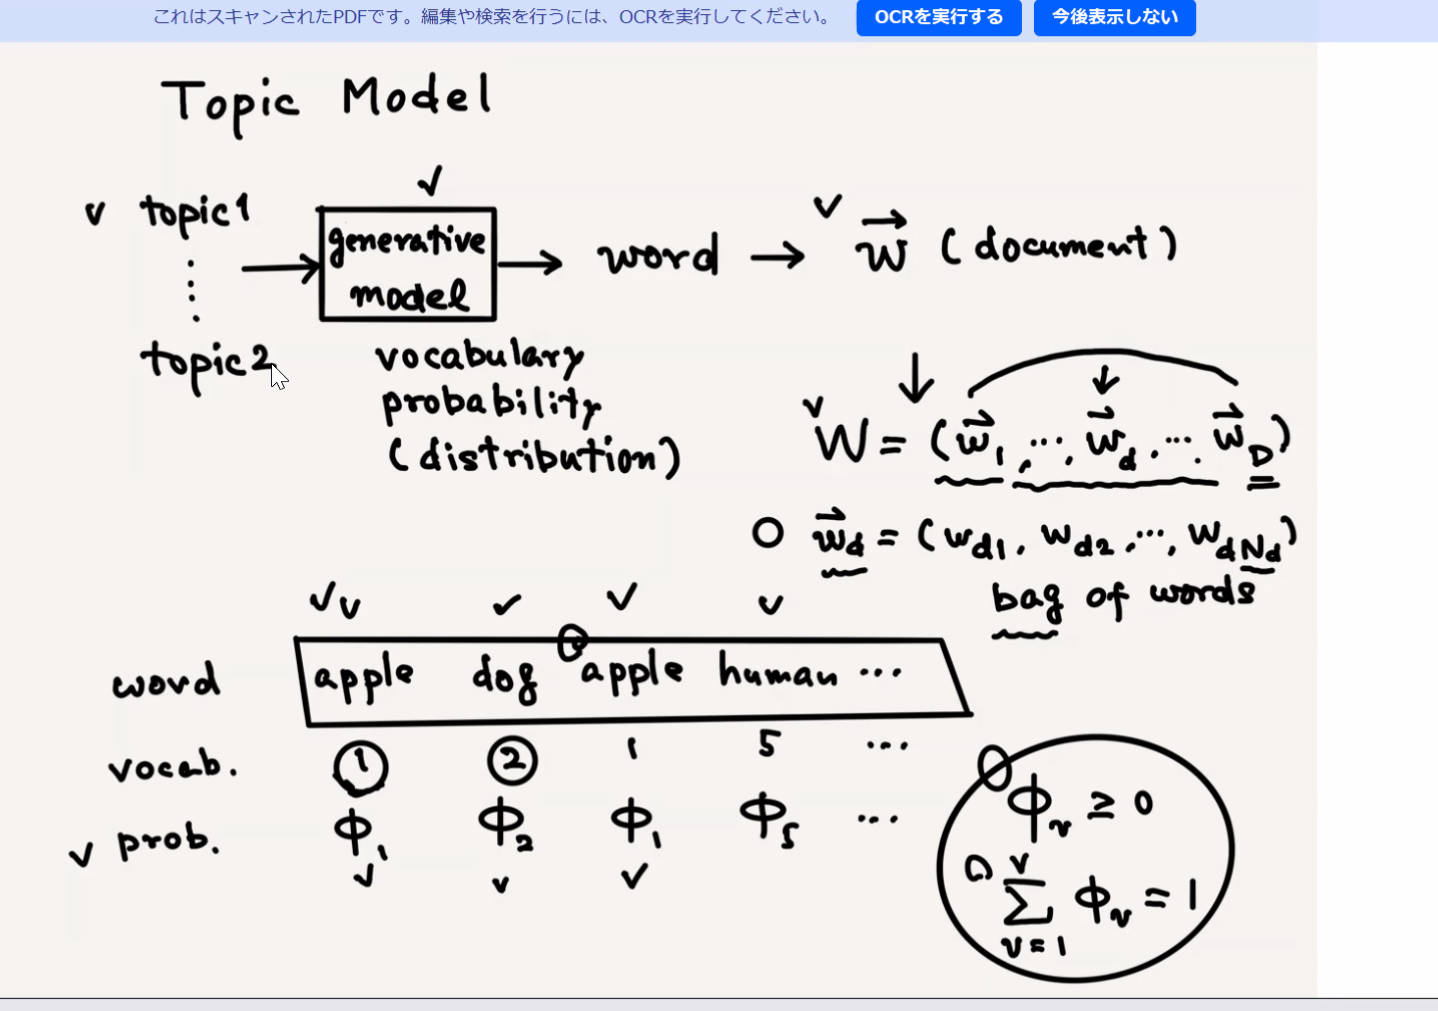 これはスキャンされたPDFです。編集や検索を行うには、OCRを実行してください。 OCRを実行する 今後表示しない
Topic Model
✓
v topic1
⋮
topic2
generative
model
→ word → v w⃗ (document)
vocabulary
probability
(distribution)
W = (w⃗₁, ⋯, w⃗_d, ⋯. w⃗_D)
w⃗_d = (w_d1, w_d2, ⋯, w_dN_d)
bag of words
word apple dog apple human ⋯
vocab. ① ② 1 5 ⋯
prob. ϕ₁ ϕ₂ ϕ₁ ϕ₅ ⋯
ϕ_v ≥ 0
∑_{v=1}^{V} ϕ_v = 1